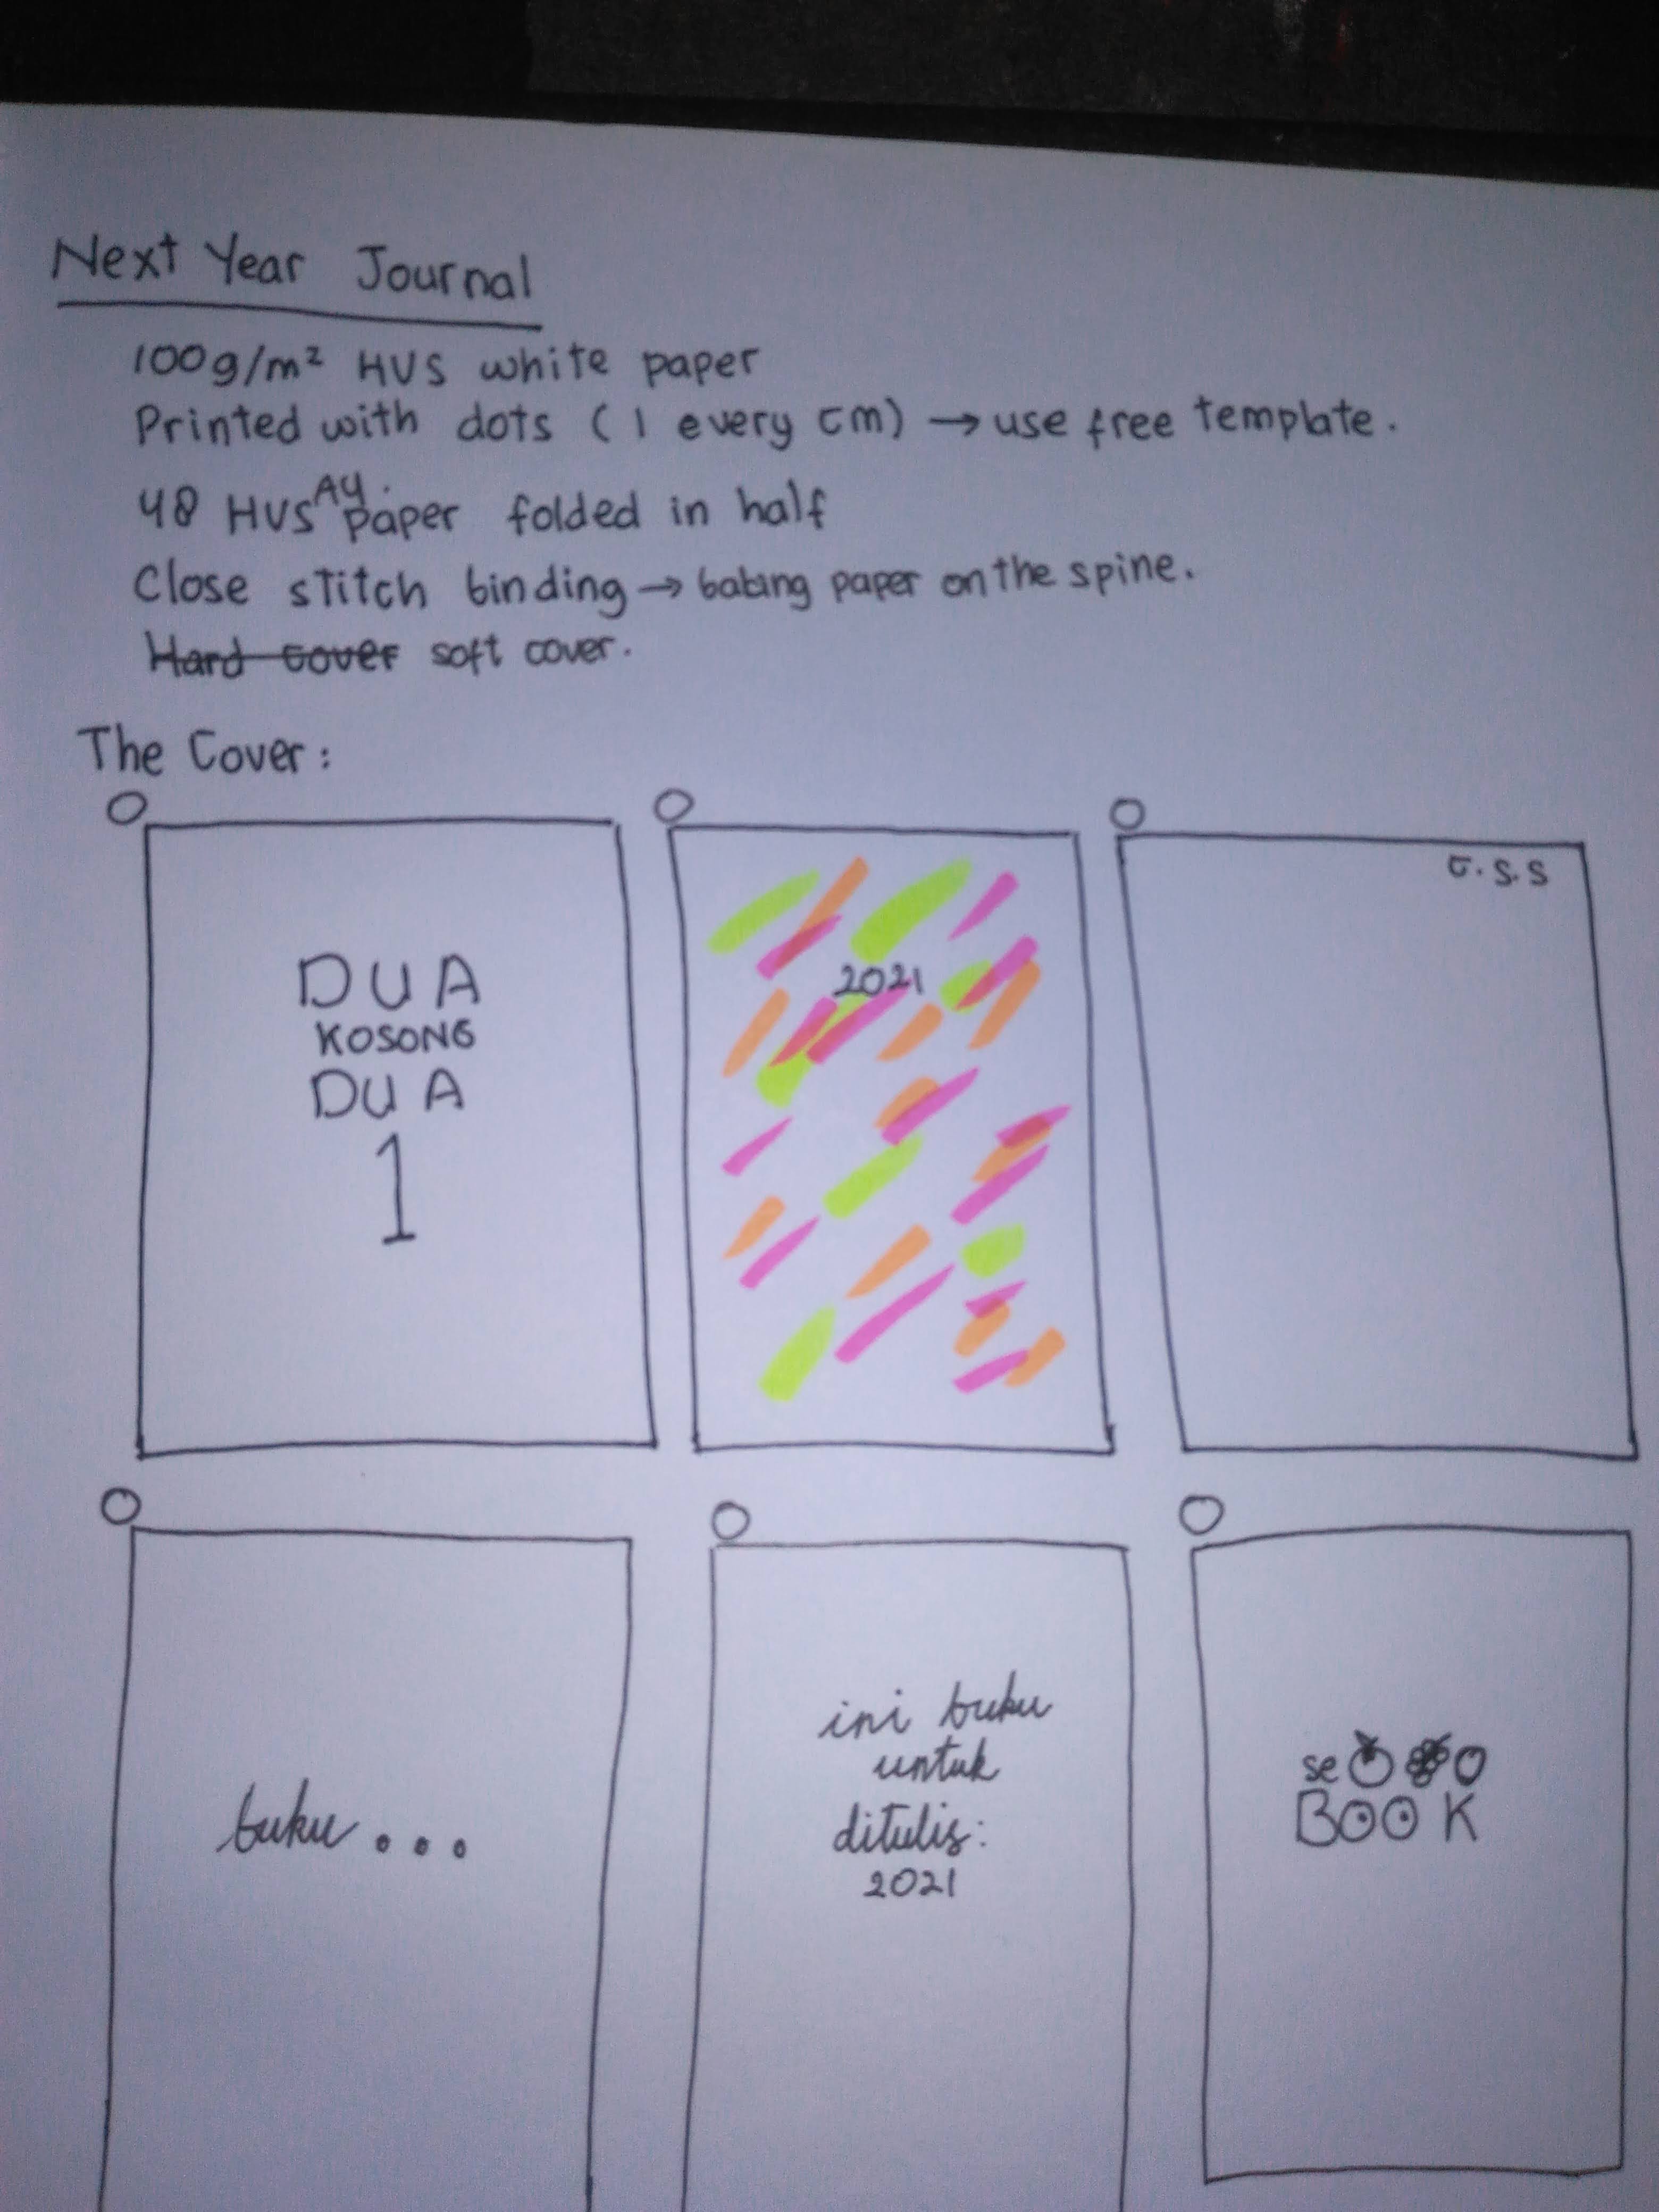 Next Year Journal
100g/m² HVS white paper
Printed with dots (1 every cm) → use free template.
48 HVS A4 paper folded in half
Close stitch binding → baking paper on the spine.
Hard cover soft cover.
The Cover:
DUA
KOSONG
DUA
1
2021
S.S
buku...
ini buku
untuk
ditulis:
2021
se
BOOK